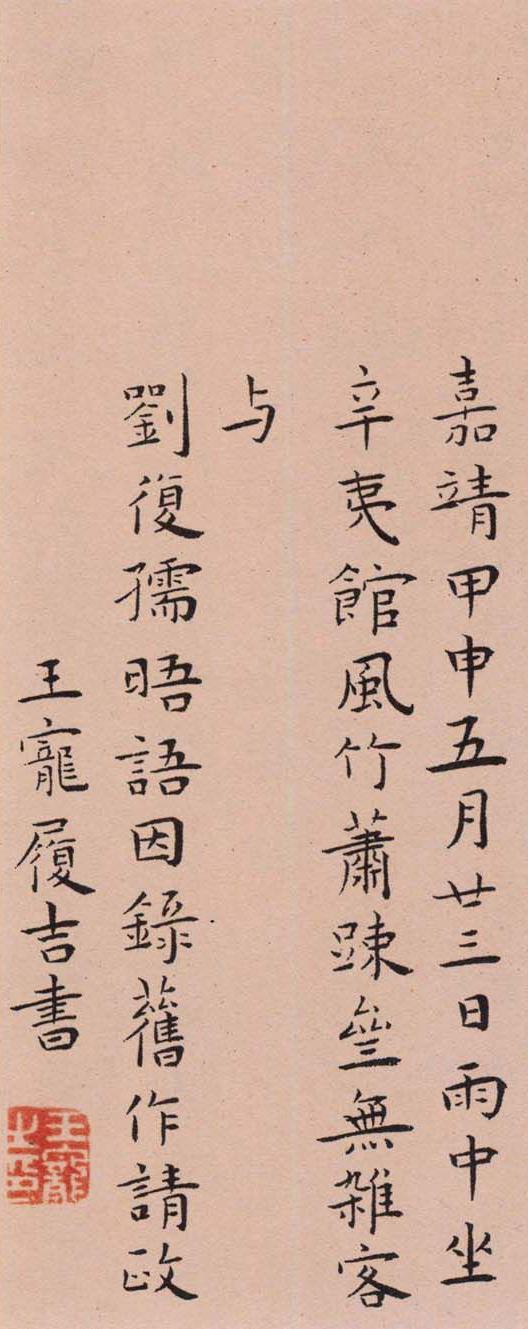 嘉靖甲申五月廿三日雨中坐
辛夷館風竹蕭踈亝無雑客
与
劉復孺晤語因錄舊作請政
王寵履吉書
王寵之印